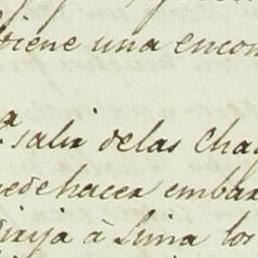 tiene una encom
a salir delas Cha
uede hacer embar
dirija à Lima los